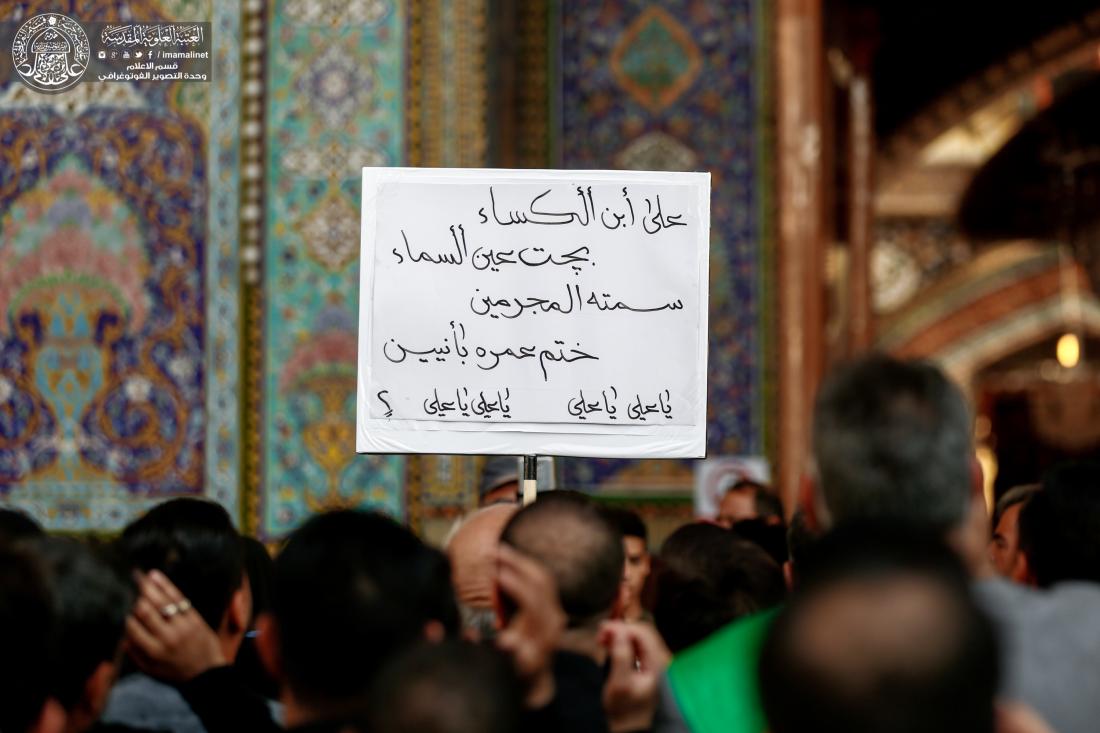 العتبة العلوية المقدسة
/ imamalinet
قسم الاعلام
وحدة التصوير الفوتوغرافي
علىٰ أبن ألكساء
بجت عين ألسماء
سمته المجرمين
ختم عمره بأنيين
ياعلي ياعلي ياعلي ياعلي ؟